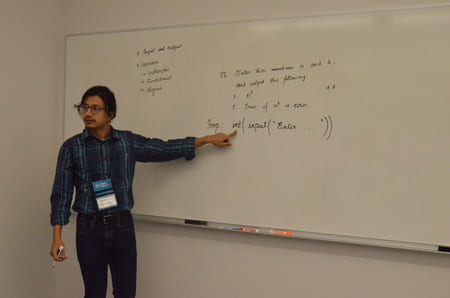 * Input and Output
* Operators
↳ Arithmetic
↳ Conditional
↳ Logical
Enter two numbers n and k,
and output the following:
1. n^k
2. True if n^k is even
int( input( "Enter ... " ))